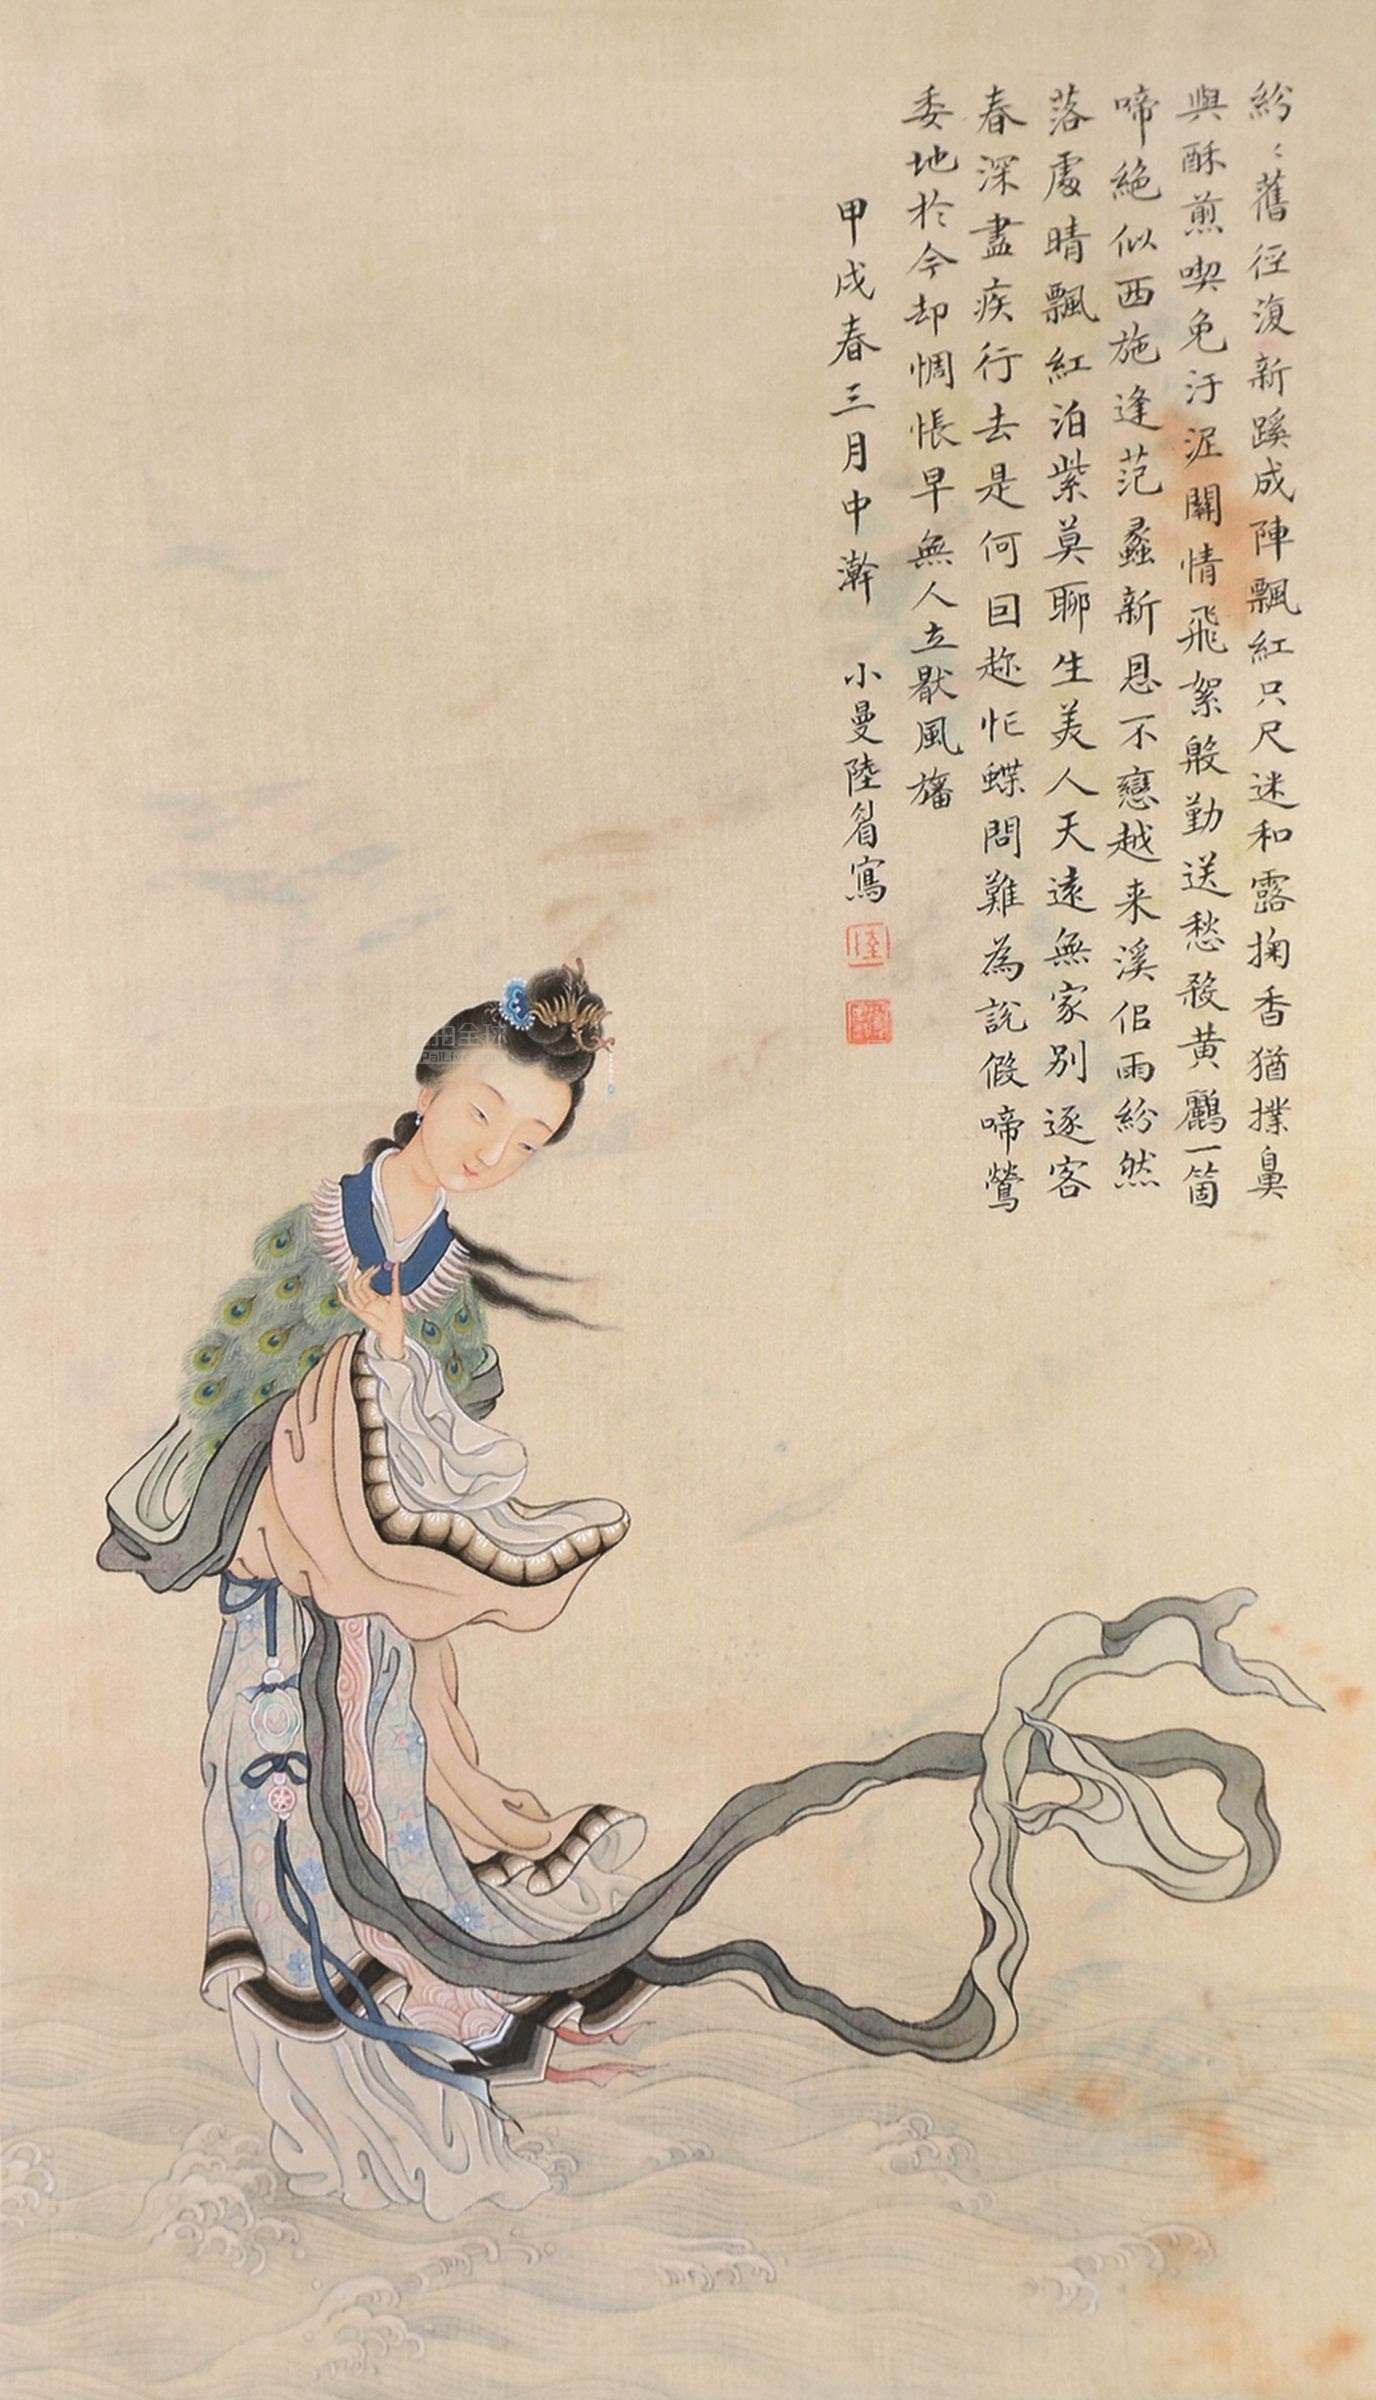 紛〻舊徑復新蹊成陣飄紅只尺迷和露掬香猶撲鼻
與酥煎喫免汙泥關情飛絮殷勤送愁殺黄鸝一箇
啼絶似西施逢范蠡新恩不戀越来溪佀雨紛然
落處晴飄紅泊紫莫聊生美人天遠無家别逐客
春深盡疾行去是何回趂怕蝶問難為說假啼鶯
委地於今却惆悵早無人立厭風旛
甲戌春三月中澣 小曼陸眉寫
陸
拍全球
PaiLive.com